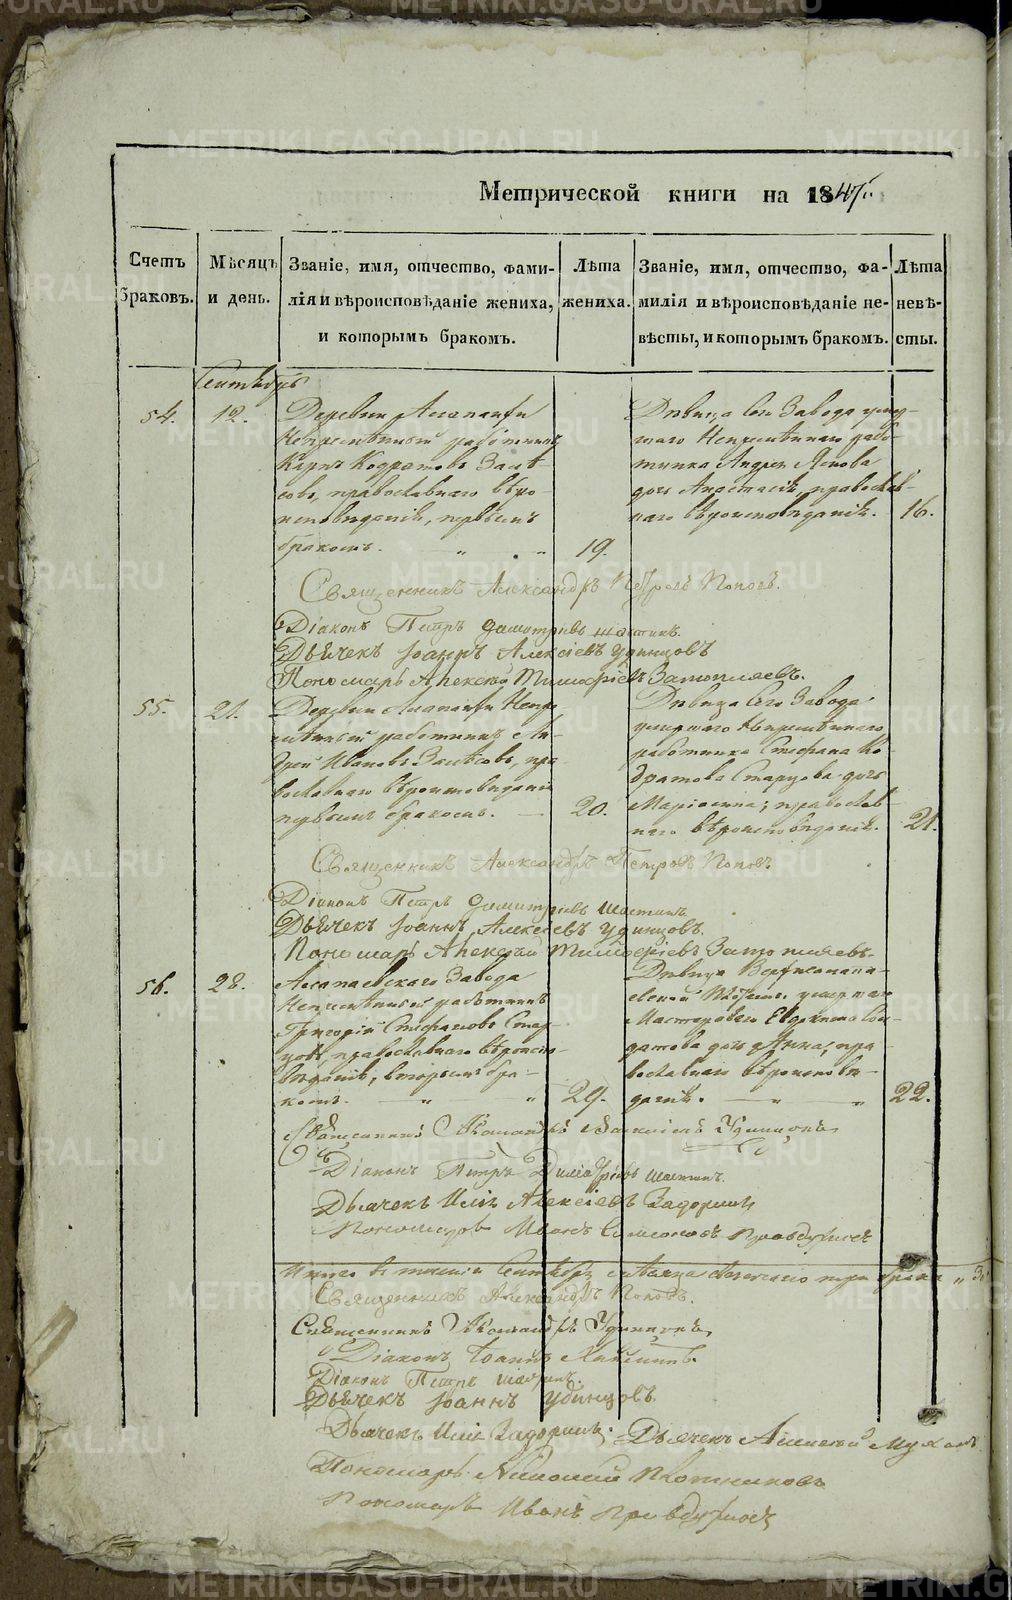 Метрической книги на 1847
Счетъ браковъ.
Мѣсяцъ и день.
Званіе, имя, отчество, фами-
лія и вѣроисповѣданіе жениха,
и которымъ бракомъ.
Лѣта
жениха.
Званіе, имя, отчество, фа-
милія и вѣроисповѣданіе не-
вѣсты, и которымъ бракомъ.
Лѣта
невѣ-
сты.
Сентябрь
54. 12.
Деревни
Непремѣнный работникъ
Карпъ Кодратовъ Залѣ-
совъ, православнаго вѣро-
исповѣданія, первымъ
бракомъ. 19.
Дѣвица сего Завода умер-
шаго Непремѣннаго рабо-
тника Андрея
дочь Анастасія, православ-
наго вѣроисповѣданія. 16.
Священникъ Александръ Петровъ Поповъ.
Діаконъ Петръ Димитріевъ
Дьячекъ Іоаннъ Алексіевъ Удинцовъ
Пономарь Алексѣй Тимоѳіевъ Затопляевъ.
55. 21.
Деревни Непре-
мѣнный работникъ Ан-
дрей Ивановъ Залѣсовъ, пра-
вославнаго вѣроисповѣданія
первымъ бракомъ. 20.
Дѣвица Сего Завода
умершаго Непремѣннаго
работника Стефана Ко-
дратова Старцова дочь
православ-
наго вѣроисповѣданія. 21.
Священникъ Александръ Петровъ Поповъ.
Діаконъ Петръ Димитріевъ
Дьячекъ Іоаннъ Алексіевъ Удинцовъ.
Пономарь Алексѣй Тимоѳіевъ Затопляевъ.
56. 28.
Алапаевскаго Завода
Непремѣнный работникъ
Григорій Стефановъ Стар-
цовъ, православнаго вѣроиспо-
вѣданія, вторымъ бра-
комъ. 29.
Дѣвица Верхнеалапа-
евской умершаго
Мастероваго Евдокима Сол-
датова дочь Анна, пра-
вославнаго вѣроисповѣ-
данія. 22.
Священникъ Александръ Удинцовъ
Діаконъ Петръ Димитріевъ
Дьячекъ Илія Алексіевъ Задоринъ
Пономарь Иванъ Симеоновъ
Итого въ Сентябрѣ три брака „ 3.
Священникъ Александръ Поповъ.
Священникъ Александръ Удинцовъ.
Діаконъ Іоаннъ
Діаконъ Петръ
Дьячекъ Іоаннъ Удинцовъ.
Дьячекъ Илія Задоринъ. Дьячекъ Алексѣй
Пономарь Плотниковъ
Пономарь Иванъ
METRIKI.GASO-URAL.RU